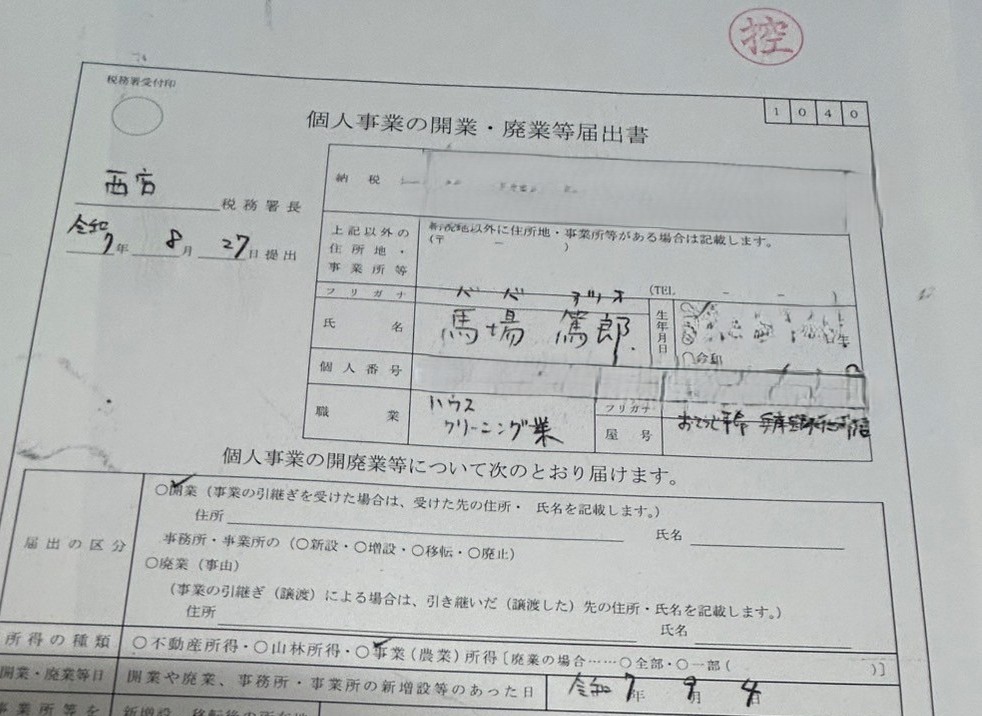 控
税務署受付印
1040
個人事業の開業・廃業等届出書
西宮 税務署長
令和 7年 8月 27日提出
納税
上記以外の住所地・事業所等
納税地以外に住所地・事業所等がある場合は記載します。
(〒 － )
(TEL － － )
フリガナ
氏名 馬場 篤郎
生年月日
令和
生
個人番号
職業 ハウスクリーニング業
フリガナ
屋号
個人事業の開廃業等について次のとおり届けます。
届出の区分
○開業（事業の引継ぎを受けた場合は、受けた先の住所・ 氏名を記載します。）
住所 氏名
事務所・事業所の（○新設・○増設・○移転・○廃止）
○廃業（事由）
（事業の引継ぎ（譲渡）による場合は、引き継いだ（譲渡した）先の住所・氏名を記載します。）
住所 氏名
所得の種類 ○不動産所得・○山林所得・○事業（農業）所得［廃業の場合……○全部・○一部（ ）］
開業・廃業等日 開業や廃業、事務所・事業所の新増設等のあった日 令和 7年 9月 4日
事業所等を
新増設、移転後の所在地